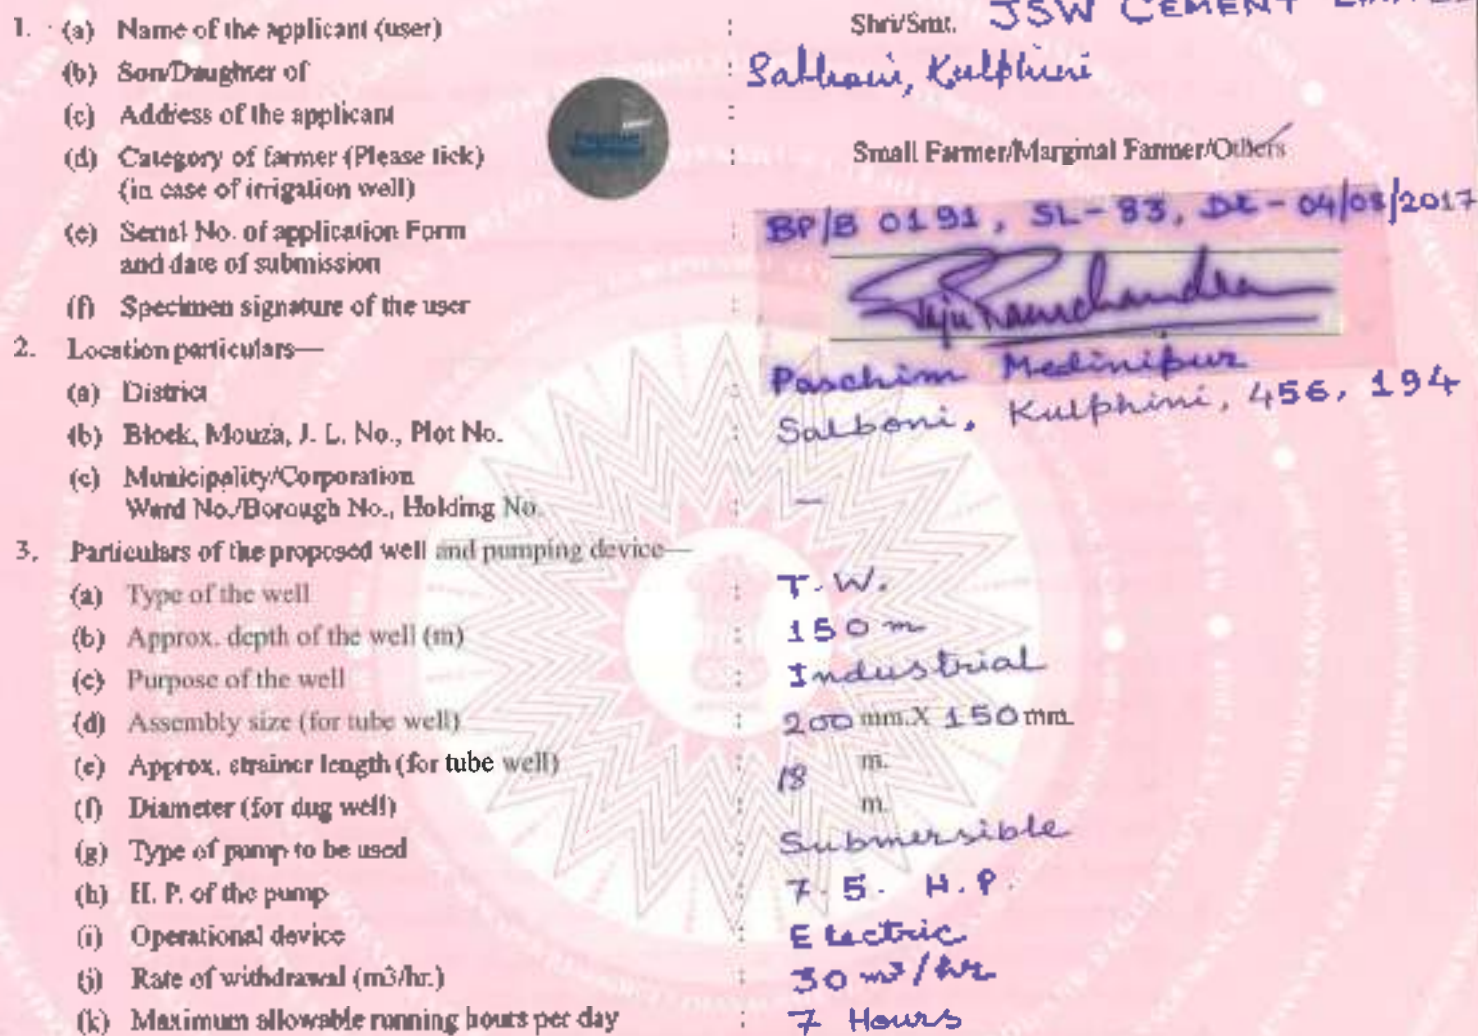 1. (a) Name of the applicant (user) : Shri/Smt. JSW CEMENT
(b) Son/Daughter of : Salboni, Kulphini
(c) Address of the applicant :
(d) Category of farmer (Please tick) : Small Farmer/Marginal Farmer/Others
(in case of irrigation well)
(e) Serial No. of application Form : BP/B 0191, SL-83, Dt-04/08/2017
and date of submission
(f) Specimen signature of the user : Ramchandra
2. Location particulars—
(a) District : Paschim Medinipur
(b) Block, Mouza, J. L. No., Plot No. : Salboni, Kulphini, 456, 194
(c) Municipality/Corporation
Ward No./Borough No., Holding No. : —
3. Particulars of the proposed well and pumping device—
(a) Type of the well : T.W.
(b) Approx. depth of the well (m) : 150 m
(c) Purpose of the well : Industrial
(d) Assembly size (for tube well) : 200 mm.X 150 mm.
(e) Approx. strainer length (for tube well) : 18 m.
(f) Diameter (for dug well) : m.
(g) Type of pump to be used : Submersible
(h) H. P. of the pump : 7.5. H.P.
(i) Operational device : Electric
(j) Rate of withdrawal (m3/hr.) : 30 m³/hr
(k) Maximum allowable running hours per day : 7 Hours